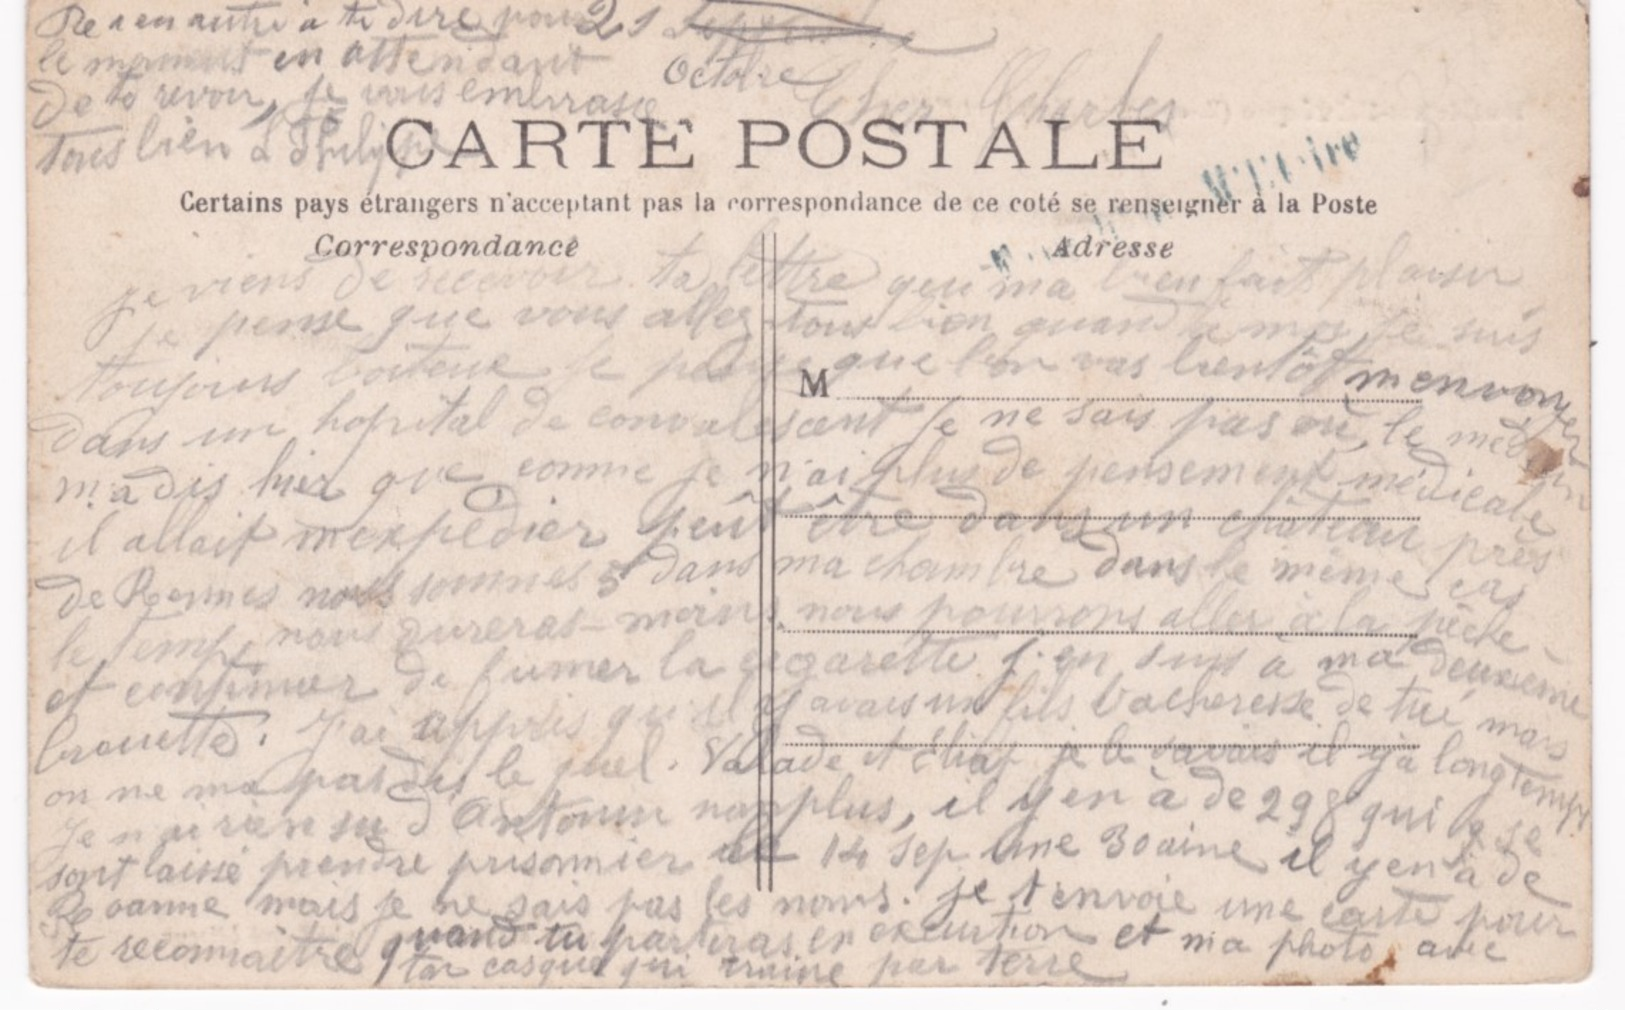 21 Septembre
Octobre
Cher Charles
CARTE POSTALE
Certains pays étrangers n'acceptent pas la correspondance de ce coté se renseigner à la Poste
Correspondance
Adresse
M
je viens de recevoir ta lettre qui ma bien fait plaisir
je pense que vous allez tous bien quand à moi je suis
toujours boiteux je pense que l'on vas bientôt m'envoyer
dans un hopital de convalescent je ne sais pas où, le médecin
m'a dis hier que comme je n'ai plus de pensement médicale
il allait m'expédier peût être dans un château près
de Rennes nous sommes 5 dans ma chambre dans le même cas
le temps nous dureras moins nous pourrons aller à la pêche
et continuer de fumer la cigarette j'en suis à ma deuxième
brouette. J'ai appris qu'il y avais un fils Vacheresse de tué mais
on ne ma pas dis le quel. Valade et je le savais il y a longtemps
Je n'ai rien su d'Antonin non plus, il y en à de 298 qui se
sont laissé prendre prisonnier le 14 Sep une 30aine il y en à de
Roanne mais je ne sais pas les noms. je t'envoie une carte pour
te reconnaître quand tu partiras en excurtion et ma photo avec
ton casque qui traine par terre
Rien autre à te dire pour
le moment en attendant
de te revoir, je vous embrasse
tous bien Philippe